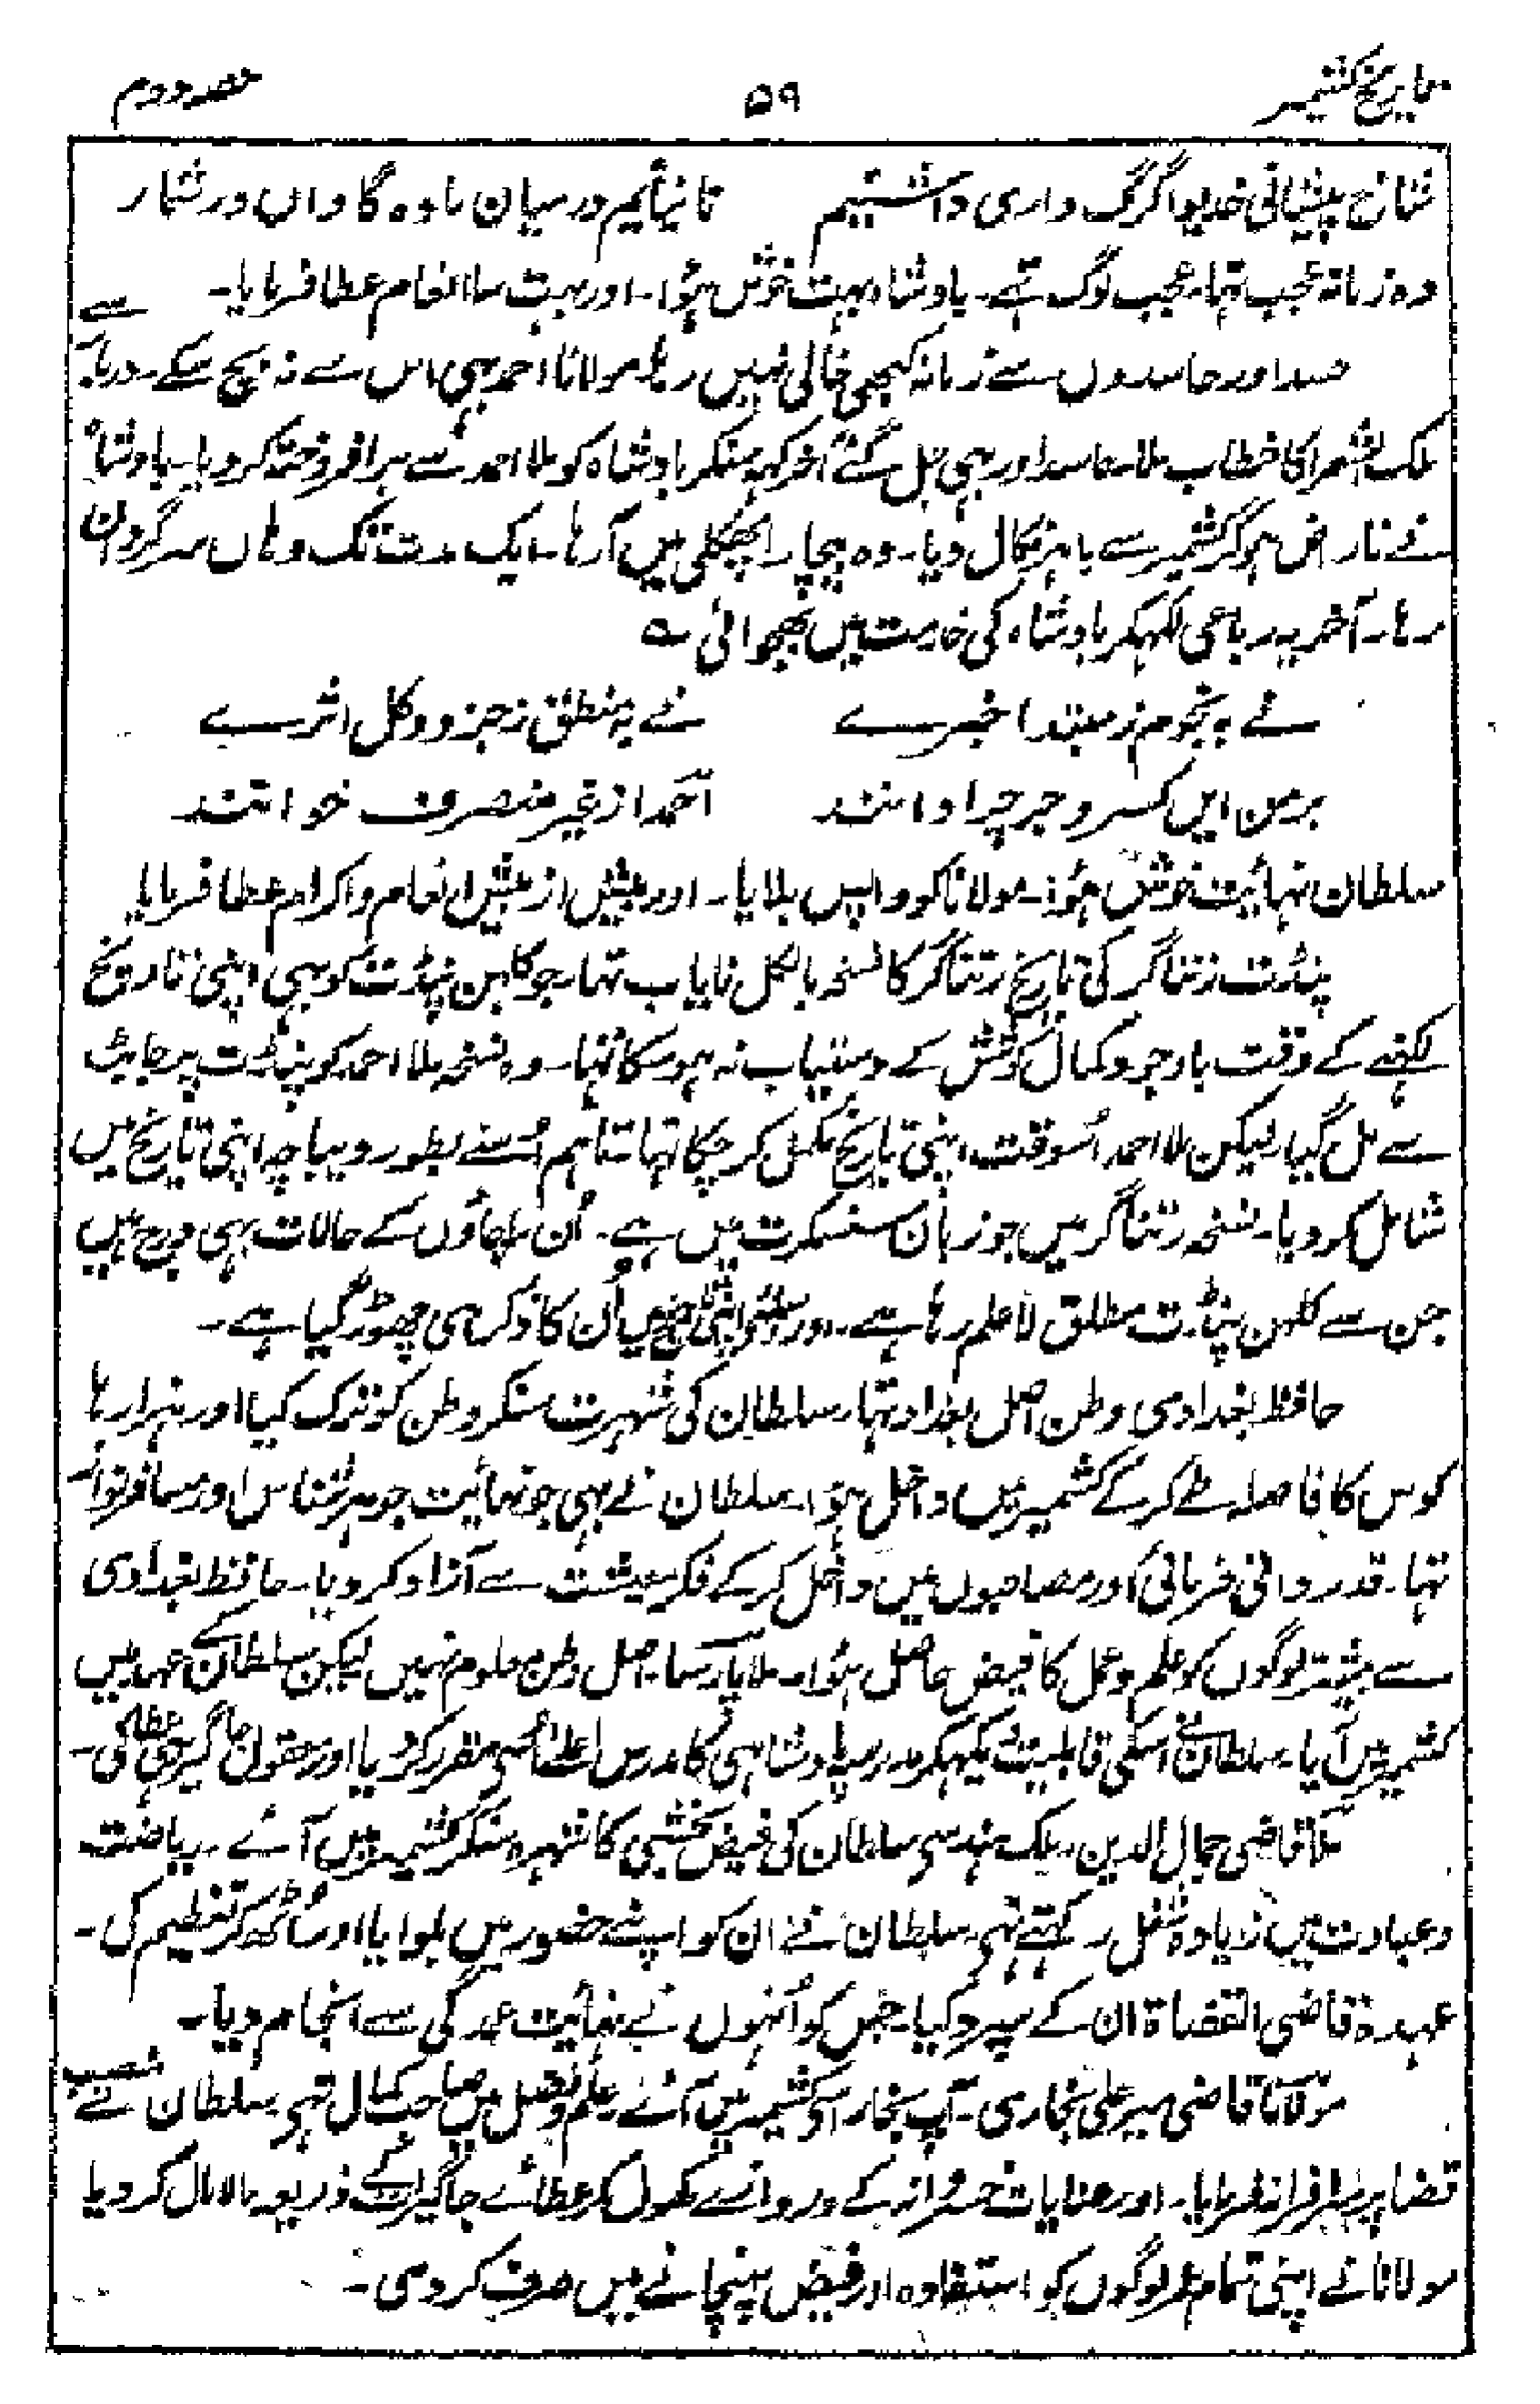 تاریخ کشمیر
۵۹
حصہ دوم
شاخ پیشانی خدیوا گرگ داری داشتیم تا نیائیم درمیان مادہ گاواں در شمار
وہ زمانہ عجب تہا۔ عجب لوگ تہے۔ بادشاہ بہت خوش ہؤا۔ اور بہت سا انعام عطا فرمایا۔
حسد اور حاسدوں سے زمانہ کبھی خالی نہیں رہا۔ مولانا احمد بہی اس سے نہ بچ سکے۔ دربار سے
ملک الشعرا کا خطاب ملا۔ حاسد اور بہی جل گئے آخر کہہ سنکر بادشاہ کو ملا احمد سے برافروختہ کر دیا۔ بادشاہ
نے ناراض ہو کر کشمیر سے باہر نکال دیا۔ وہ بیچارا پکھلی میں آ رہا۔ ایک مدت تک وہاں سرگرداں
رہا۔ آخر یہ رباعی لکہکر بادشاہ کی خدمت میں بھجوائی ؎
نے بہ نجوم ز مبتدا خبرے نے بہ منطق ز جزو و کل اثرے
بر من ایں کسر و جر چرا دانند احمد از غیر منصرف خوانند
سلطان نہائیت خوش ہؤا۔ مولانا کو واپس بلایا۔ اور بیش از بیش انعام و اکرام عطا فرمایا
پنڈت رتناگر کی تاریخ رتناگر کا نسخہ بالکل نایاب تہا۔ جو کلہن پنڈت کو بہی اپنی تاریخ
لکہنے کے وقت باوجود کمال کوشش کے دستیاب نہ ہو سکا تہا۔ وہ نسخہ ملا احمد کو پنڈت پرجا بٹ
سے مل گیا۔ لیکن ملا احمد اسوقت اپنی تاریخ مکمل کر چکا تہا تاہم اُسنے بطور دیباچہ اپنی تاریخ میں
شامل کر دیا۔ نسخہ رتناگر میں جو زبان سنسکرت میں ہے۔ اُن راجاؤں کے حالات بہی درج ہیں
جن سے کلہن پنڈت مطلق لا علم رہا ہے۔ اور اسلئے اپنی تاریخ میں اُن کا ذکر ہی چھوڑ گیا ہے۔
حافظ بغدادی وطن اصل بغداد تہا۔ سلطان کی شہرت سنکر وطن کو ترک کیا اور ہزارہا
کوس کا فاصلہ طے کر کے کشمیر میں داخل ہوا۔ سلطان نے بہی جو نہائیت جوہر شناس اور مسافر نواز
تہا۔ قدر دانی فرمائی اور مصاحبوں میں داخل کر کے فکر معیشت سے آزاد کر دیا۔ حافظ بغدادی
سے بیشتر لوگوں کو علم و عمل کا فیض حاصل ہؤا۔ ملا پارسا۔ اصل وطن معلوم نہیں لیکن سلطان کے عہد میں
کشمیر میں آیا۔ سلطان نے اسکی قابلیت دیکہکر مدرسہ بادشاہی کا مدرس اعلےٰ مقرر کر دیا اور معقول جاگیر بہی عطا کی۔
ملا قاضی جمال الدین۔ ملک ہند سے سلطان کی فیض بخشی کا شہرہ سنکر کشمیر میں آئے۔ ریاضت
و عبادت میں زیادہ شغل رکہتے تہے۔ سلطان نے ان کو اپنے حضور میں بلوایا اور اُٹھ کر تعظیم کی۔
عہدہ قاضی القضاة ان کے سپرد کیا۔ جس کو اُنہوں نے نہائیت عمدگی سے انجام دیا۔
مولانا قاضی میر علی بخاری۔ آپ بخارا سے کشمیر میں آئے۔ علم و فضل میں صاحب کمال تہے۔ سلطان نے منصب
قضا پر سرفراز فرمایا۔ اور عنایات خسروانہ کے دروازے کھول کر عطائے جاگیرات کے ذریعہ مالا مال کر دیا
مولانا نے اپنی تمام عمر لوگوں کو استفادہ اور فیض پہنچانے میں صرف کر دی۔